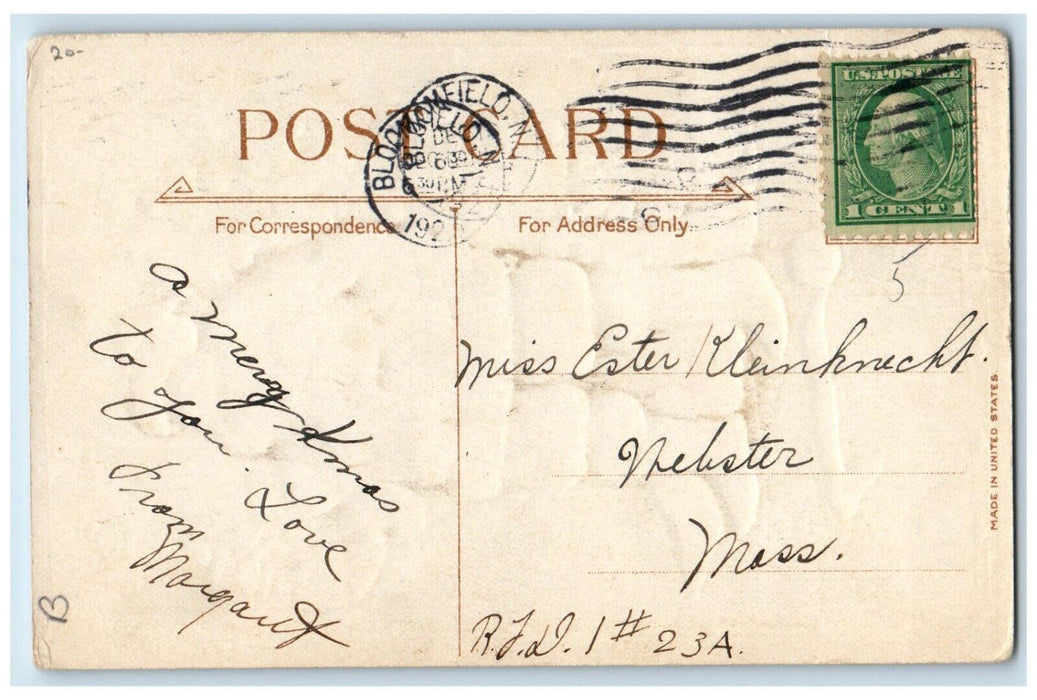 20-
POST CARD
BLOOMFIELD, N.
U.S. POSTAGE
1 CENT 1
For Correspondence
For Address Only.
5
A Merry Xmas
to You. Love
From
Margaret
Miss Ester Kleinknecht.
Webster
Mass.
R.F.D. 1 # 23A.
MADE IN UNITED STATES
B